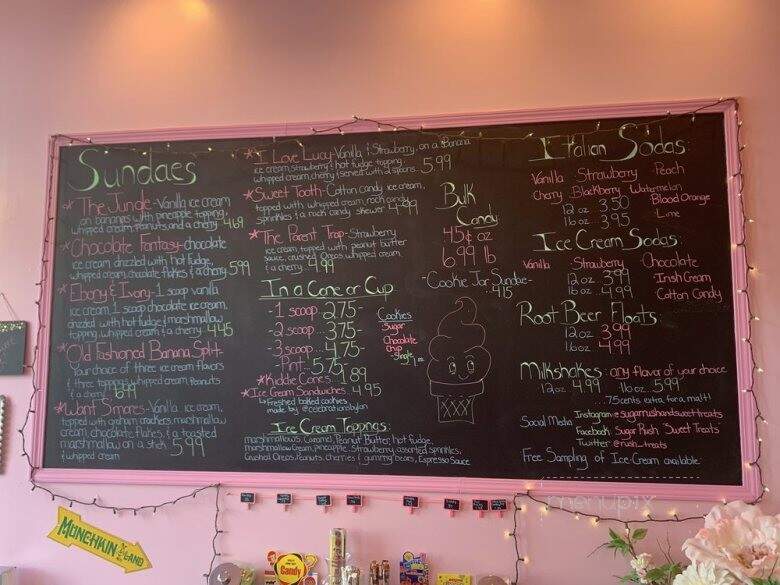 Sundaes
*The Jungle - Vanilla ice cream
on bananas with pineapple topping,
whipped cream, peanuts and a cherry 4.69
*Chocolate Fantasy - chocolate
ice cream drizzled with hot fudge,
whipped cream, chocolate flakes & a cherry 5.99
*Ebony & Ivory - 1 scoop vanilla
ice cream, 1 scoop chocolate ice cream,
drizzled with hot fudge & marshmallow
topping, whipped cream & a cherry 4.45
*Old Fashioned Banana Split -
Your choice of three ice cream flavors
& three toppings, whipped cream, Peanuts
& cherry 6.99
*Want Smores - Vanilla ice cream,
topped with graham crackers, marshmallow
cream, chocolate flakes, & a toasted
marshmallow on a stick 5.99
& whipped cream
*I Love Lucy - Vanilla & Strawberry on a Banana
ice cream, strawberry & hot fudge topping
whipped cream, cherry (served with 2 spoons) 5.99
*Sweet Tooth - Cotton candy ice cream,
topped with whipped cream, rock candy
sprinkles & a rock candy skewer 4.99
*The Parent Trap - Strawberry
ice cream, topped with peanut butter
sauce, crushed Oreos, whipped cream,
& a cherry 4.99
In a Cone or Cup
-1 scoop... 2.75-
-2 scoop... 3.75-
-3 scoop... 4.75-
-Pint... 5.75
*Kiddie Cones - 1.89
*Ice Cream Sandwiches... 4.95
Freshed baked cookies
made by @celebrationsbylan
Cookies
-Sugar
-Chocolate
Chip
-Single
Ice Cream Toppings:
marshmallows, Caramel, Peanut Butter, hot fudge,
marshmallow Cream, pineapple, Strawberry, assorted sprinkles,
Crushed Oreos, Peanuts, cherries & gummy bears, Espresso Sauce
Bulk
Candy
45¢ oz
6.99 lb
-Cookie Jar Sundae-
4.15
Italian Sodas
Vanilla Strawberry Peach
Cherry Blackberry Watermelon
12 oz 3.50 Blood Orange
16 oz 3.95 Lime
Ice Cream Sodas
Vanilla Strawberry Chocolate
12 oz 3.99 Irish Cream
16 oz 4.99 Cotton Candy
Root Beer Floats
12 oz 3.99
16 oz 4.99
Milkshakes: any flavor of your choice
12 oz 4.99 16 oz 5.99
...75 cents extra for a malt!
Social Media Instagram @sugarrushandsweettreats
Facebook Sugar Rush Sweet Treats
Twitter @rush_treats
Free Sampling of Ice Cream available
menupix
MUNCHKIN LAND
Candy